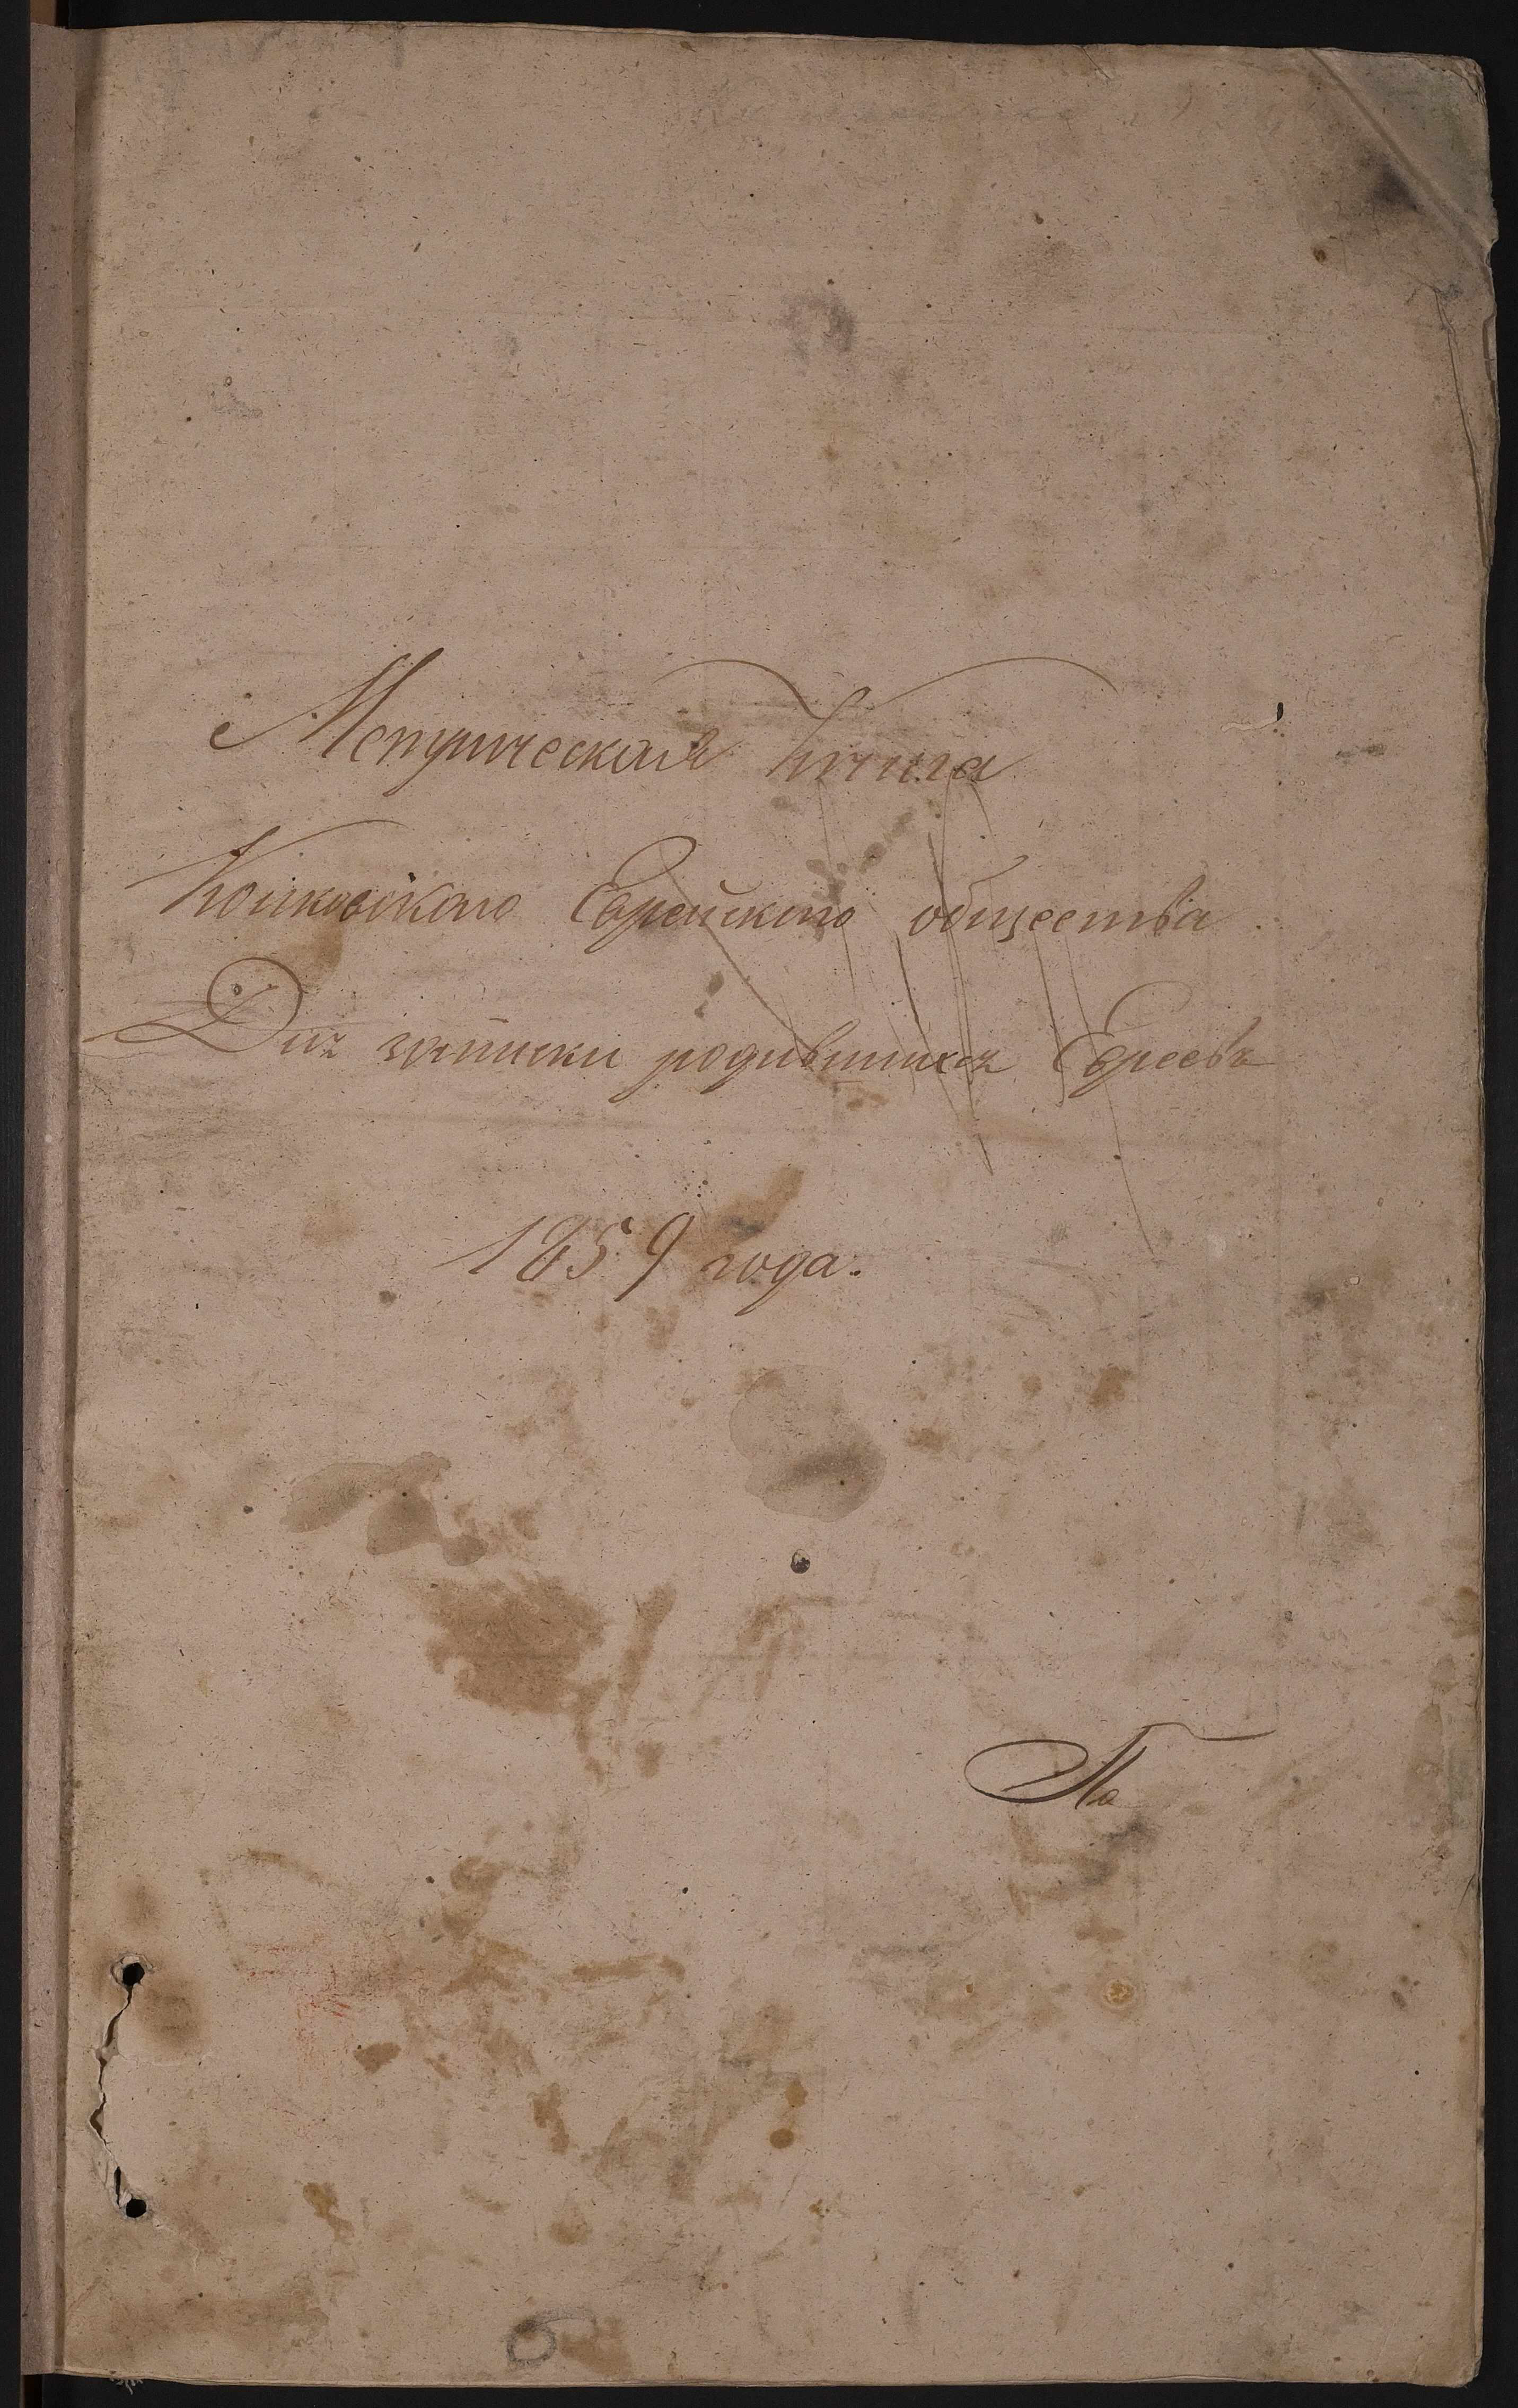 Метрическая Книга
Еврейскаго общества
Для записки родившихся Евреевъ
1859 года.
По